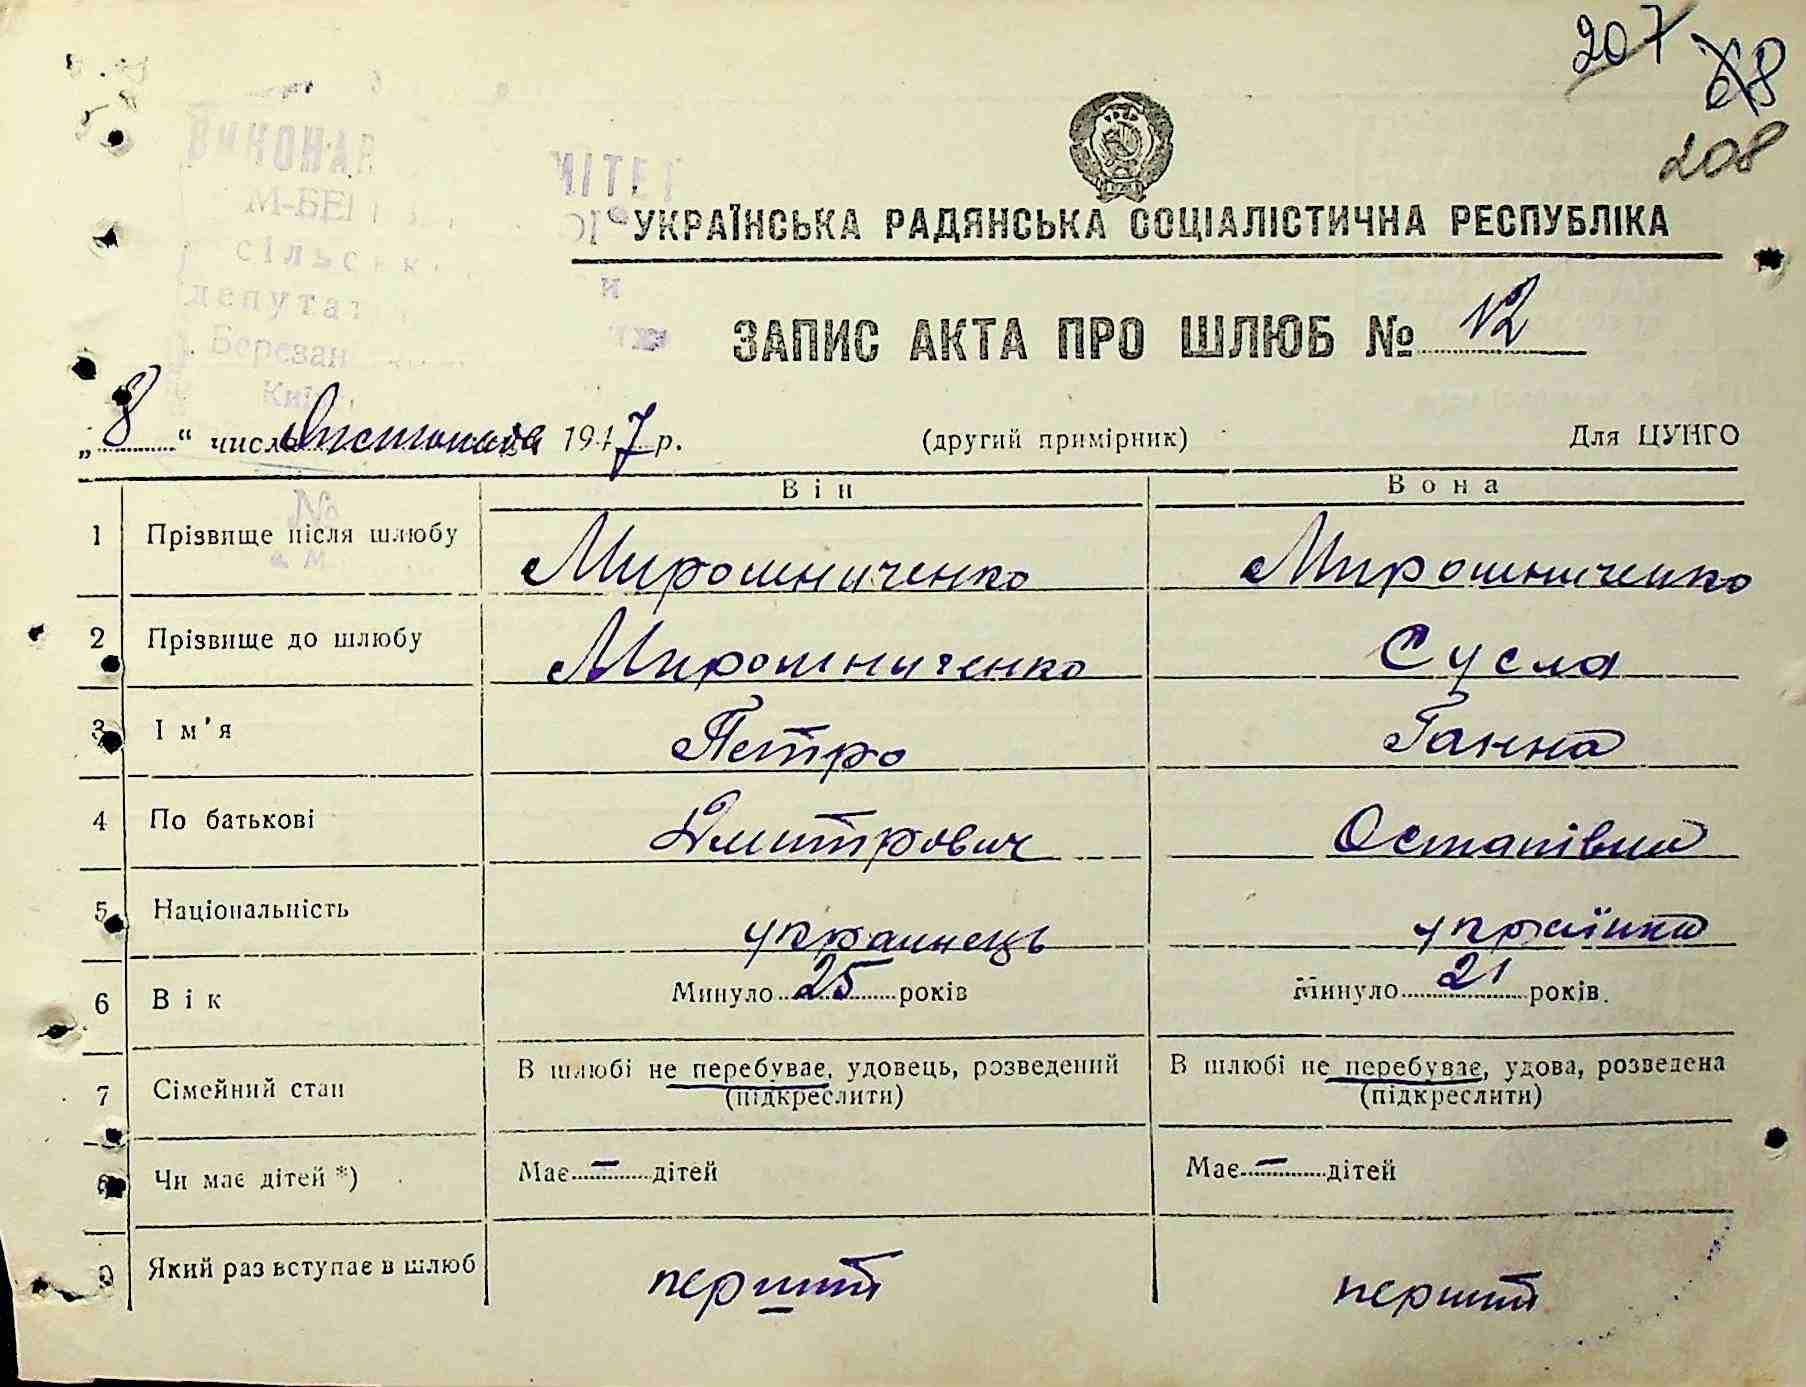 207 68
208
ВИКОНАВ МІТЕТ
М-БЕР
сільськ
депутат
Березан
Киї
УКРАЇНСЬКА РАДЯНСЬКА СОЦІАЛІСТИЧНА РЕСПУБЛІКА
ЗАПИС АКТА ПРО ШЛЮБ № 12
„8“ числа Листопада 1947 р. (другий примірник) Для ЦУНГО
№
Він Вона
1 Прізвище після шлюбу Мирошниченко Мирошниченко
2 Прізвище до шлюбу Мирошниченко Сусла
3 Ім'я Петро Ганна
4 По батькові Дмитрович Остапівна
5 Національність украинець українка
6 Вік Минуло 25 років Минуло 21 років.
7 Сімейний стан В шлюбі не перебуває, удовець, розведений В шлюбі не перебуває, удова, розведена
(підкреслити) (підкреслити)
8 Чи має дітей *) Має — дітей Має — дітей
9 Який раз вступає в шлюб перший перший